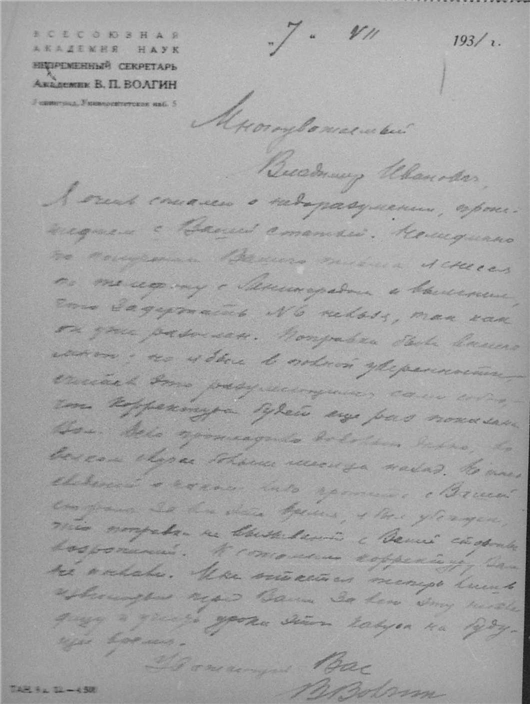 ВСЕСОЮЗНАЯ
АКАДЕМИЯ НАУК
НЕПРЕМЕННЫЙ СЕКРЕТАРЬ
Академик В. П. ВОЛГИН
Ленинград, Университетская наб. 5
„7“ VII 1931 г.
Многоуважаемый
Владимир Иванович,
Я очень сожалею о недоразумении, проис-
шедшем с Вашей статьей. Немедленно
по получении Вашего письма я снесся
по телефону с Ленинградом и выяснил,
что задержать №6 нельзя, так как
он уже разослан. Поправка была
мною; но я был в полной уверенности,
считая это разумеющимся само собою,
что корректура будет еще раз показана
Вам. Дело происходило довольно давно, во
всяком случае больше месяца назад. Не имея
сведений о каком либо протесте с Вашей
стороны за все это время, я был убежден,
что поправки не вызывают с Вашей стороны
возражений. К сожалению корректуру Вам
не показали. Мне остается теперь лишь
извиниться перед Вами за всю эту
и учесть уроки этого казуса на буду-
щее время.
Уважающий Вас
В Волгин